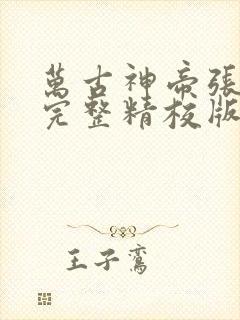 萬古神帝張
完整精校版
王子鸞